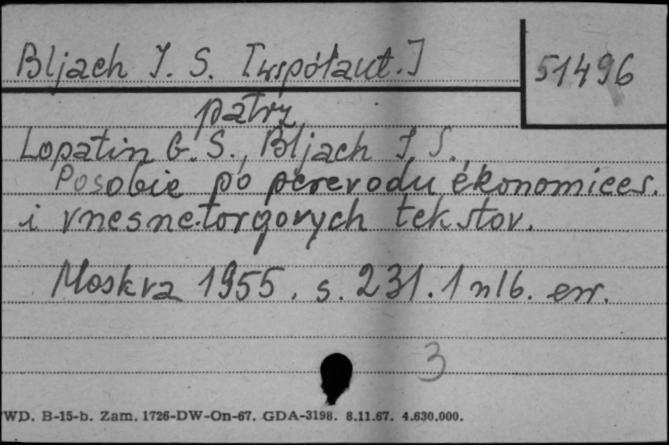 Bljach J. S. [współaut.]
51496
patrz
Lopatin G. S., Bljach J. S.
Posobie po perevodu ékonomičes.
i vnesnetorgovych tekstov.
Moskva 1955. s. 231. 1 nlb. err.
3
WD. B-15-b. Zam. 1726-DW-On-67. GDA-3198. 8.11.67. 4.630.000.